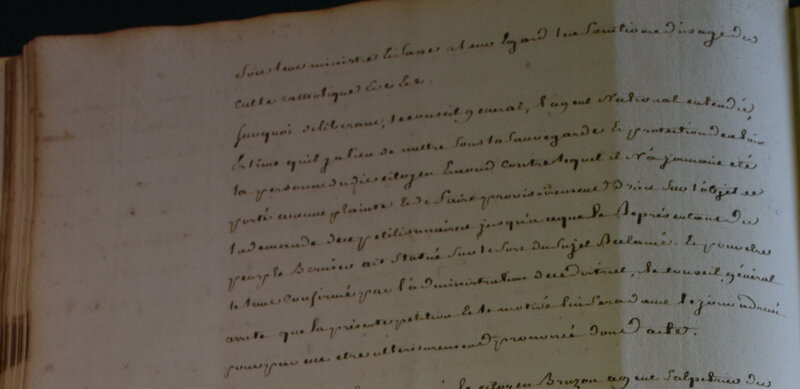 son ministre et faire a leur Egard les fonctions d'usage du
culte catholique Etc Etc.
Surquoi deliberant, le conseil general, l'agent National entendu
Estime qu'il ya lieu de mettre sous la sauvegarde Et protection de la loi
la personne dudit citoyen Enoud contre lequel il N'a jamais eté
porté aucune plainte Et de faire provisoirement droit sur l'objet de
la demande des petitionnaires jusqu'a ce que le Representant du
peuple ait statué sur le sort du sujet Reclamé. Et pour etre
le tout confirmé par l'administration de ce district, le conseil general
arrete que la présente petition Et le motivé lui sera dans le jour adressé
pour par elle etre ulterieurement prononcé dont acte.
le citoyen Bruzon agent salpetrier du